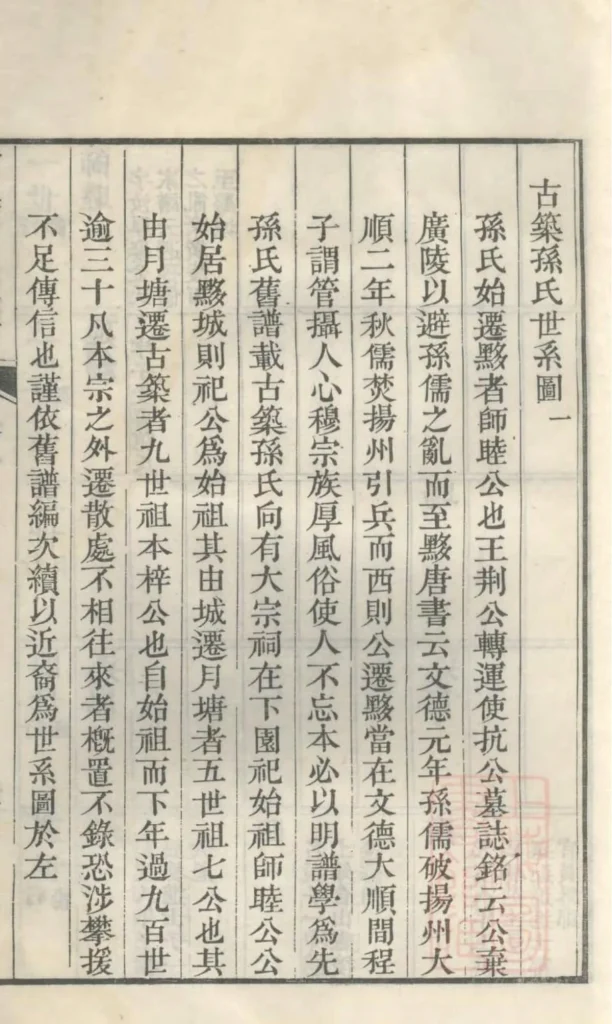 古築孫氏世系圖一
孫氏始遷黟者師睦公也王荆公轉運使抗公墓誌銘云公棄
廣陵以避孫儒之亂而至黟唐書云文德元年孫儒破揚州大
順二年秋儒焚揚州引兵而西則公遷黟當在文德大順間程
子謂管攝人心穆宗族厚風俗使人不忘本必以明譜學爲先
孫氏舊譜載古築孫氏向有大宗祠在下園祀始祖師睦公公
始居黟城則祀公爲始祖其由城遷月塘者五世祖七公也其
由月塘遷古築者九世祖本梓公也自始祖而下年過九百世
逾三十凡本宗之外遷散處不相往來者槪置不錄恐涉攀援
不足傳信也謹依舊譜編次續以近裔爲世系圖於左